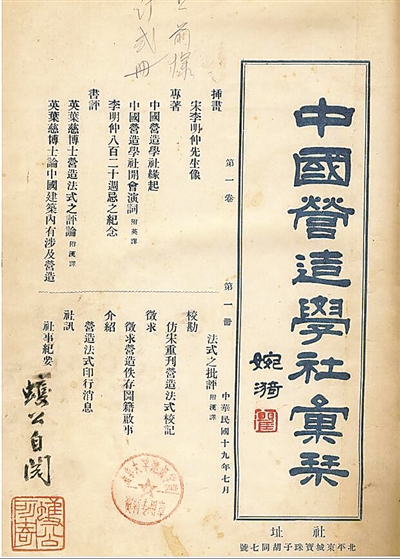 中國營造學社彙栞
婉漪
社址
北平東城寶珠子胡同七號
中華民國十九年七月
第一卷
第一冊
插畫
宋李明仲先生像
專著
中國營造學社緣起
中國營造學社開會演詞 附英譯
李明仲八百二十週忌之紀念
書評
英葉慈博士營造法式之評論 附漢譯
英葉慈博士論中國建築內有涉及營造
法式之批評 附漢譯
校勘
仿宋重刊營造法式校記
徵求
徵求營造佚存圖籍啟事
介紹
營造法式印行消息
社訊
社事紀要
訂弐冊
自閱